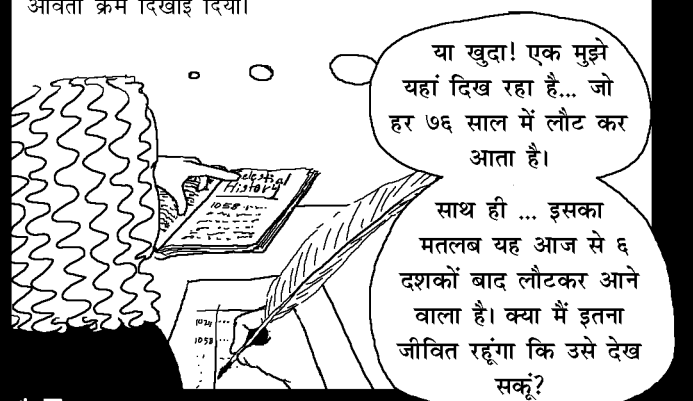 आवर्ती क्रम दिखाई दिया।
या खुदा! एक मुझे
यहां दिख रहा है... जो
हर ७६ साल में लौट कर
आता है।
साथ ही ... इसका
मतलब यह आज से ६
दशकों बाद लौटकर आने
वाला है। क्या मैं इतना
जीवित रहूंगा कि उसे देख
सकूं?
Celestial
History
1058
1058